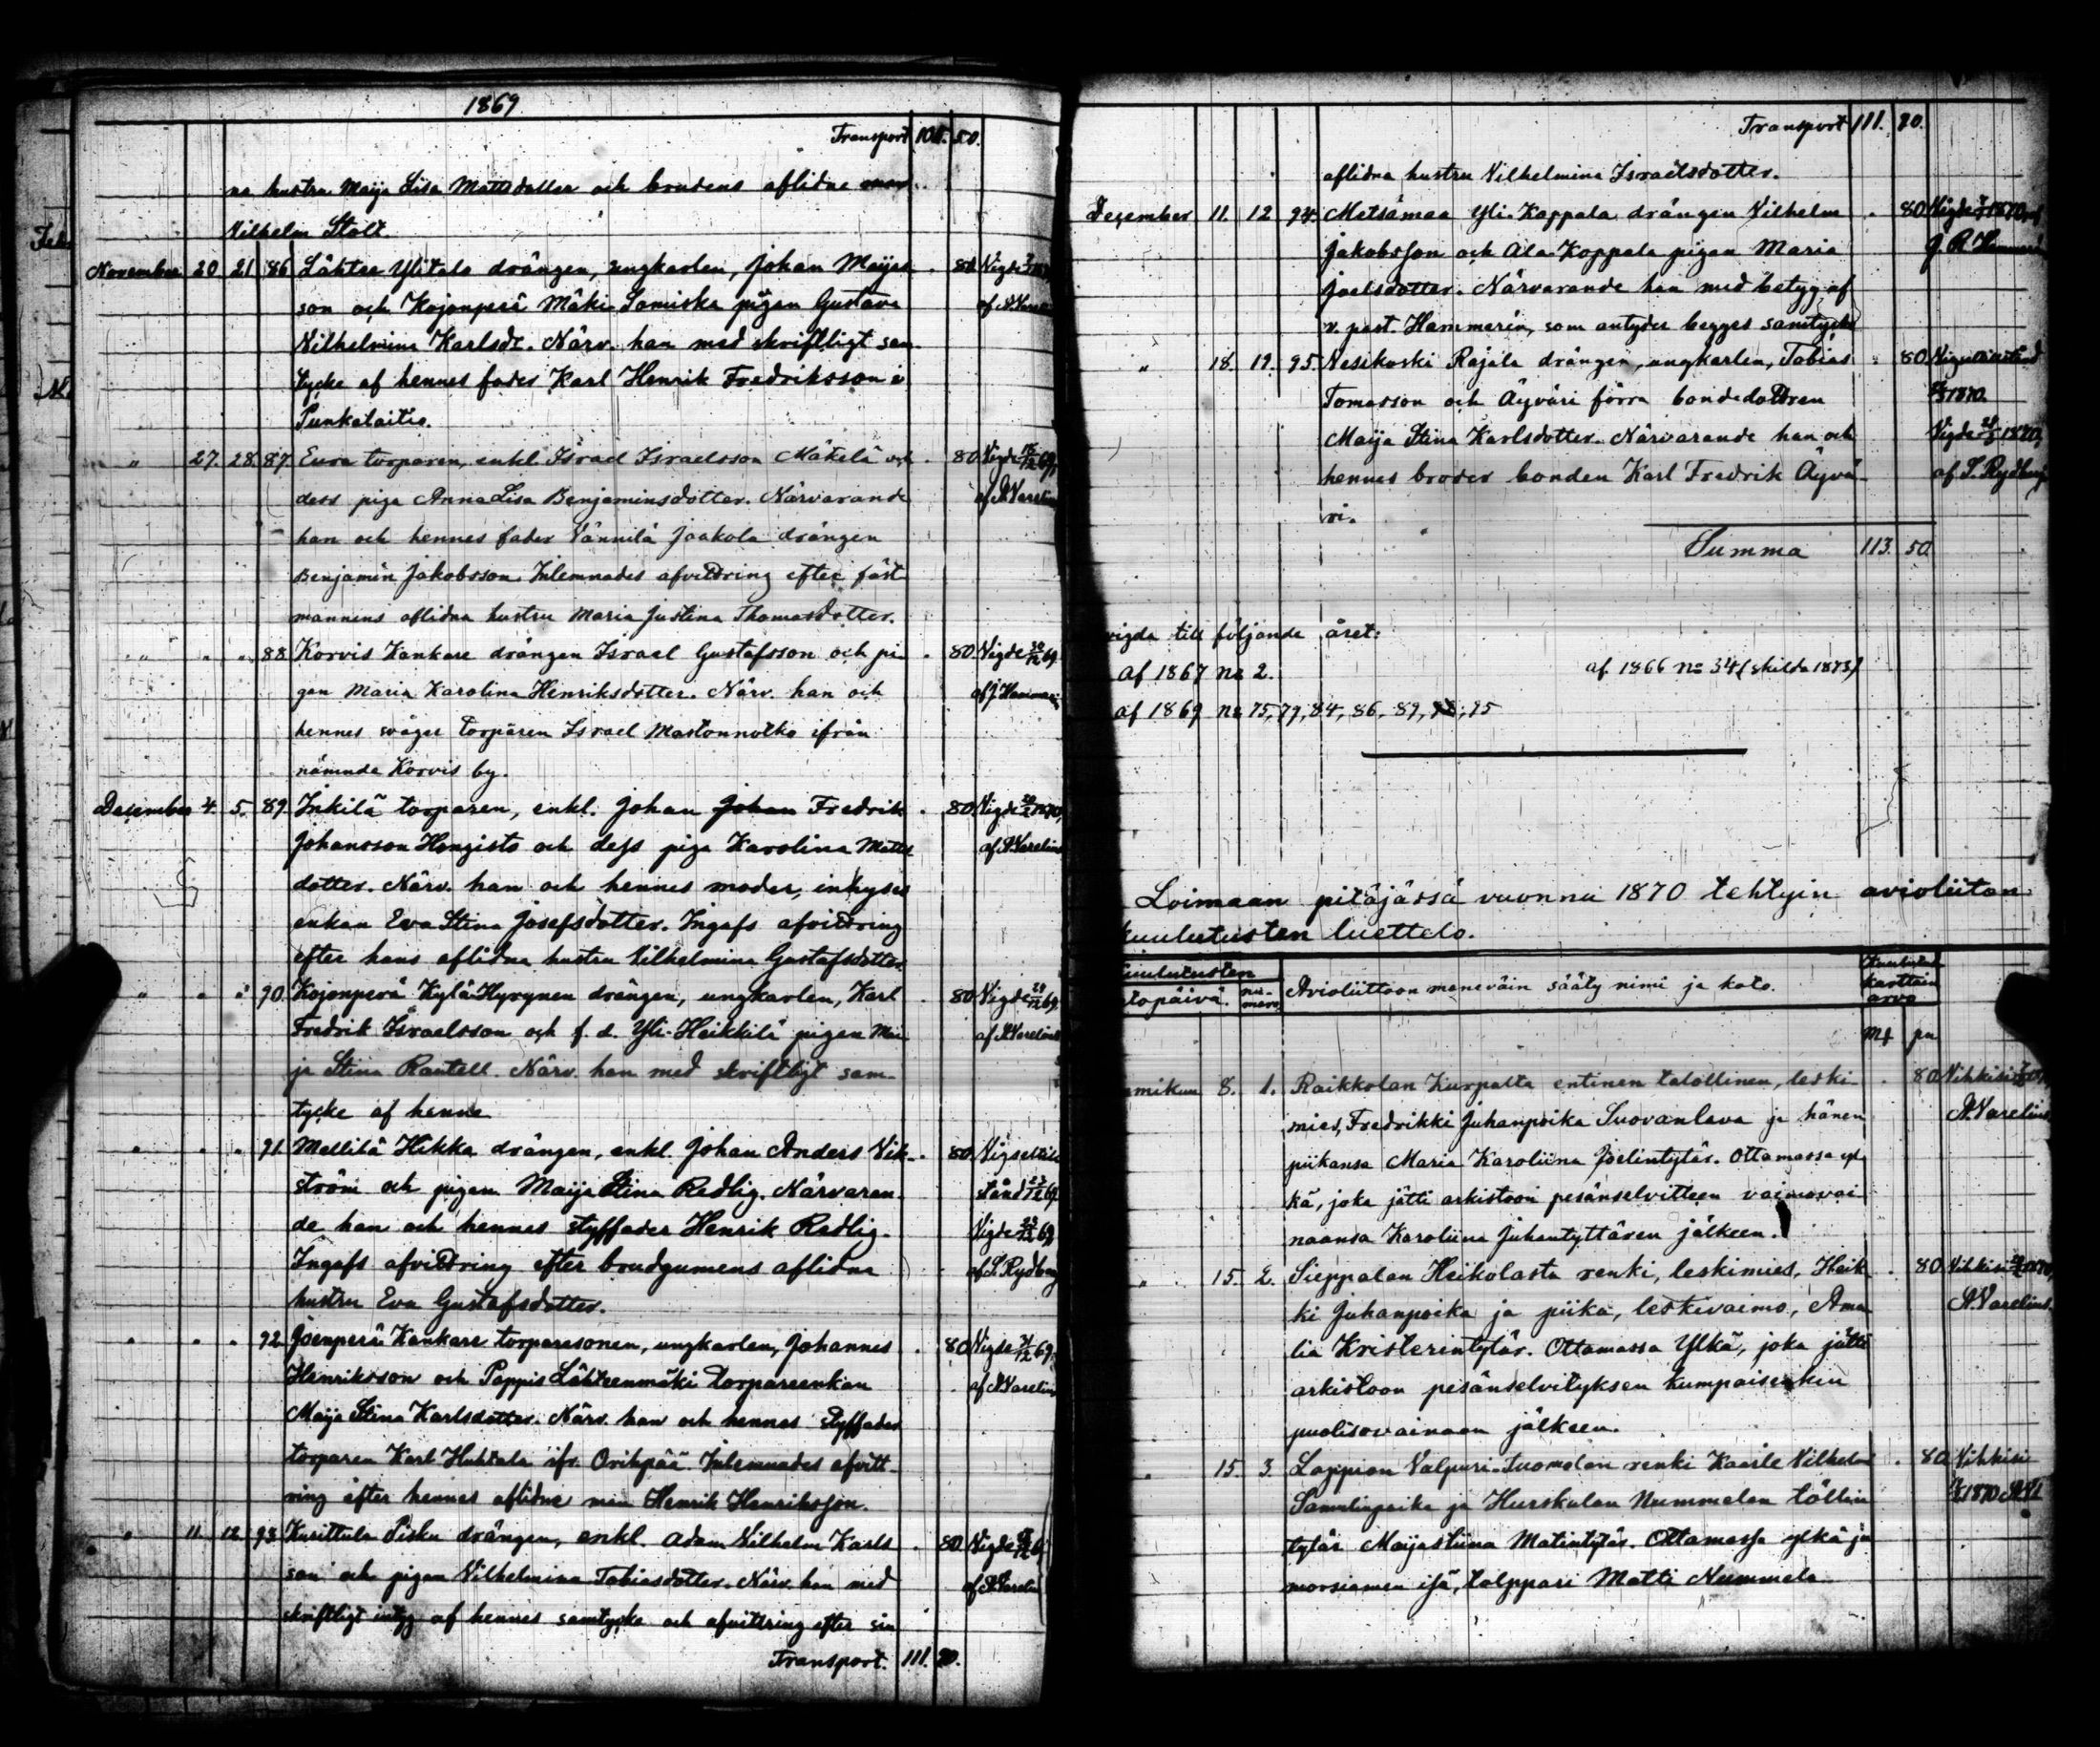 1869
Transport 105. 50.
na hustru Maija Lisa Mattsdotter och brudens aflidne man
Vilhelm Stolt.
November 20 21 86 Lähtee Ylitalo drängen, ungkarlen, Johan Maijas . 80 Vigde
son och Kojonperä Mäki Lomiska pigan Gustava af A. Varelius
Vilhelmina Karlsdr. Närv. han med skriftligt sam
tycke af hennes fader Karl Henrik Fredriksson i
Punkalaitio.
" 27. 28. 87. Eura torparen, enkl. Israel Israelsson Mäkelä och . 80 Vigde 69,
dess piga Anna Lisa Benjaminsdotter. Närvarande af A. Varelius
han och hennes fader Vännilä Jaakola drängen
Benjamin Jakobsson. Inlemnades afvittring efter fäst
mannens aflidna hustru Maria Justina Thomasdotter.
" " " 88. Korvis Kankare drängen Israel Gustafsson och pi- . 80 Vigde 30/12 69.
gan Maria Karolina Henriksdotter. Närv. han och af J. Hammarin
hennes svåger torparen Israel Mastonnotko ifrån
nämnde Korvis by.
December 4. 5. 89. Inkilä torparen, enkl. Johan Johan Fredrik . 80. Vigde 1870,
Johansson Hongisto och dess piga Karolina Matts af A. Varelius
dotter. Närv. han och hennes moder, inhyses
enkan Eva Stina Josefsdotter. Ingafs afvittring
efter hans aflidna hustru Vilhelmina Gustafsdotter.
" " " 90. Kojonperä Kylä-Hyrynen drängen, ungkarlen, Karl . 80 Vigde 69.
Fredrik Israelsson och f. d. Yli-Heikkilä pigan Mai- af A. Varelius
ja Stina Rautell. Närv. han med skriftligt sam-
tycke af henne.
" " " 91. Mellilä Hikka drängen, enkl. Johan Anders Vik- . 80 Vigselhin
ström och pigan Maija Stina Redlig. Närvaran- 69.
de han och hennes styffader Henrik Redlig. Vigde 69,
Ingafs afvittring efter brudgumens aflidna af S. Rydberg
hustru Eva Gustafsdotter.
" " " 92. Joenperä Kankare torparesonen, ungkarlen, Johannes . 80 Vigde 31/12 69.
Henriksson och Pappis Lähteenmäki torpareenkan af A. Varelius
Maija Stina Karlsdotter. Närv. han och hennes styffader
torparen Karl Huhtala ifr. Orihpää. Inlemnades afvitt-
ring efter hennes aflidne man Henrik Henriksson.
" 11. 12. 93. Kurittula Pisku drängen, enkl. Adam Vilhelm Karls . 80. Vigde
son och pigan Vilhelmina Tobiasdotter. Närv. han med af A. Varelius
skriftligt intyg af hennes samtycke och afvittring efter sin
Transport. 111. 90.
Transport 111. 90.
aflidna hustru Vilhelmina Israelsdotter.
December 11. 12 94. Metsämaa Yli-Kappala drängen Vilhelm . 80 Vigde 1870, af
Jakobsson och Ala-Koppala pigan Maria
Joelsdotter. Närvarande han med betyg af
v. past. Hammarén, som antyder begges samtycke
" 18. 19. 95. Vesikoski Rajala drängen, ungkarlen, Tobias . 80
Tomasson och Äyväri förra bondedottren 1870.
Maija Stina Karlsdotter. Närvarande han och Vigde 1870,
hennes broder bonden Karl Fredrik Äyvä- af S. Rydberg
ri.
Summa 113. 50
vigda till följande året:
af 1867 no 2. af 1866 no 34 (skilda 1873)
af 1869 no 75, 79, 84, 86, 89, 95
Loimaan pitäjässä vuonna 1870 tehtyin avioliiton
kuulutusten luettelo.
kuulutusten
topäivä. nu-mero. Avioliittoon meneväin sääty nimi ja koto. karttain arvo
Mk pn
mikuu 8. 1. Raikkolan Kurpatta entinen talollinen, leski- . 80 Vihkisi
mies, Fredrikki Juhanpoika Suovanlava ja hänen A. Varelius
piikansa Maria Karoliina Joelintytär. Ottamassa yl-
kä, joka jätti arkistoon pesänselvitteen vaimovai
naansa Karoliina Juhantyttären jälkeen.
" 15. 2. Sieppalan Heikolasta renki, leskimies, Heik- . 80 Vihkisi 1870,
ki Juhanpoika ja piika, leskivaimo, Ama A. Varelius.
lia Kristerintytär. Ottamassa Ylkä, joka jätti
arkistoon pesänselvityksen kumpaisenkin
puolisovainaan jälkeen.
" 15. 3. Lappion Valpuri-Tuomolan renki Kaarle Vilhelm . 80 Vihkisi
Samulinpoika ja Hurskalan Nummelan töllin 1870
tytär Maijastiina Matintytär. Ottamassa ylkä ja
morsiamen isä, talppari Matti Nummela